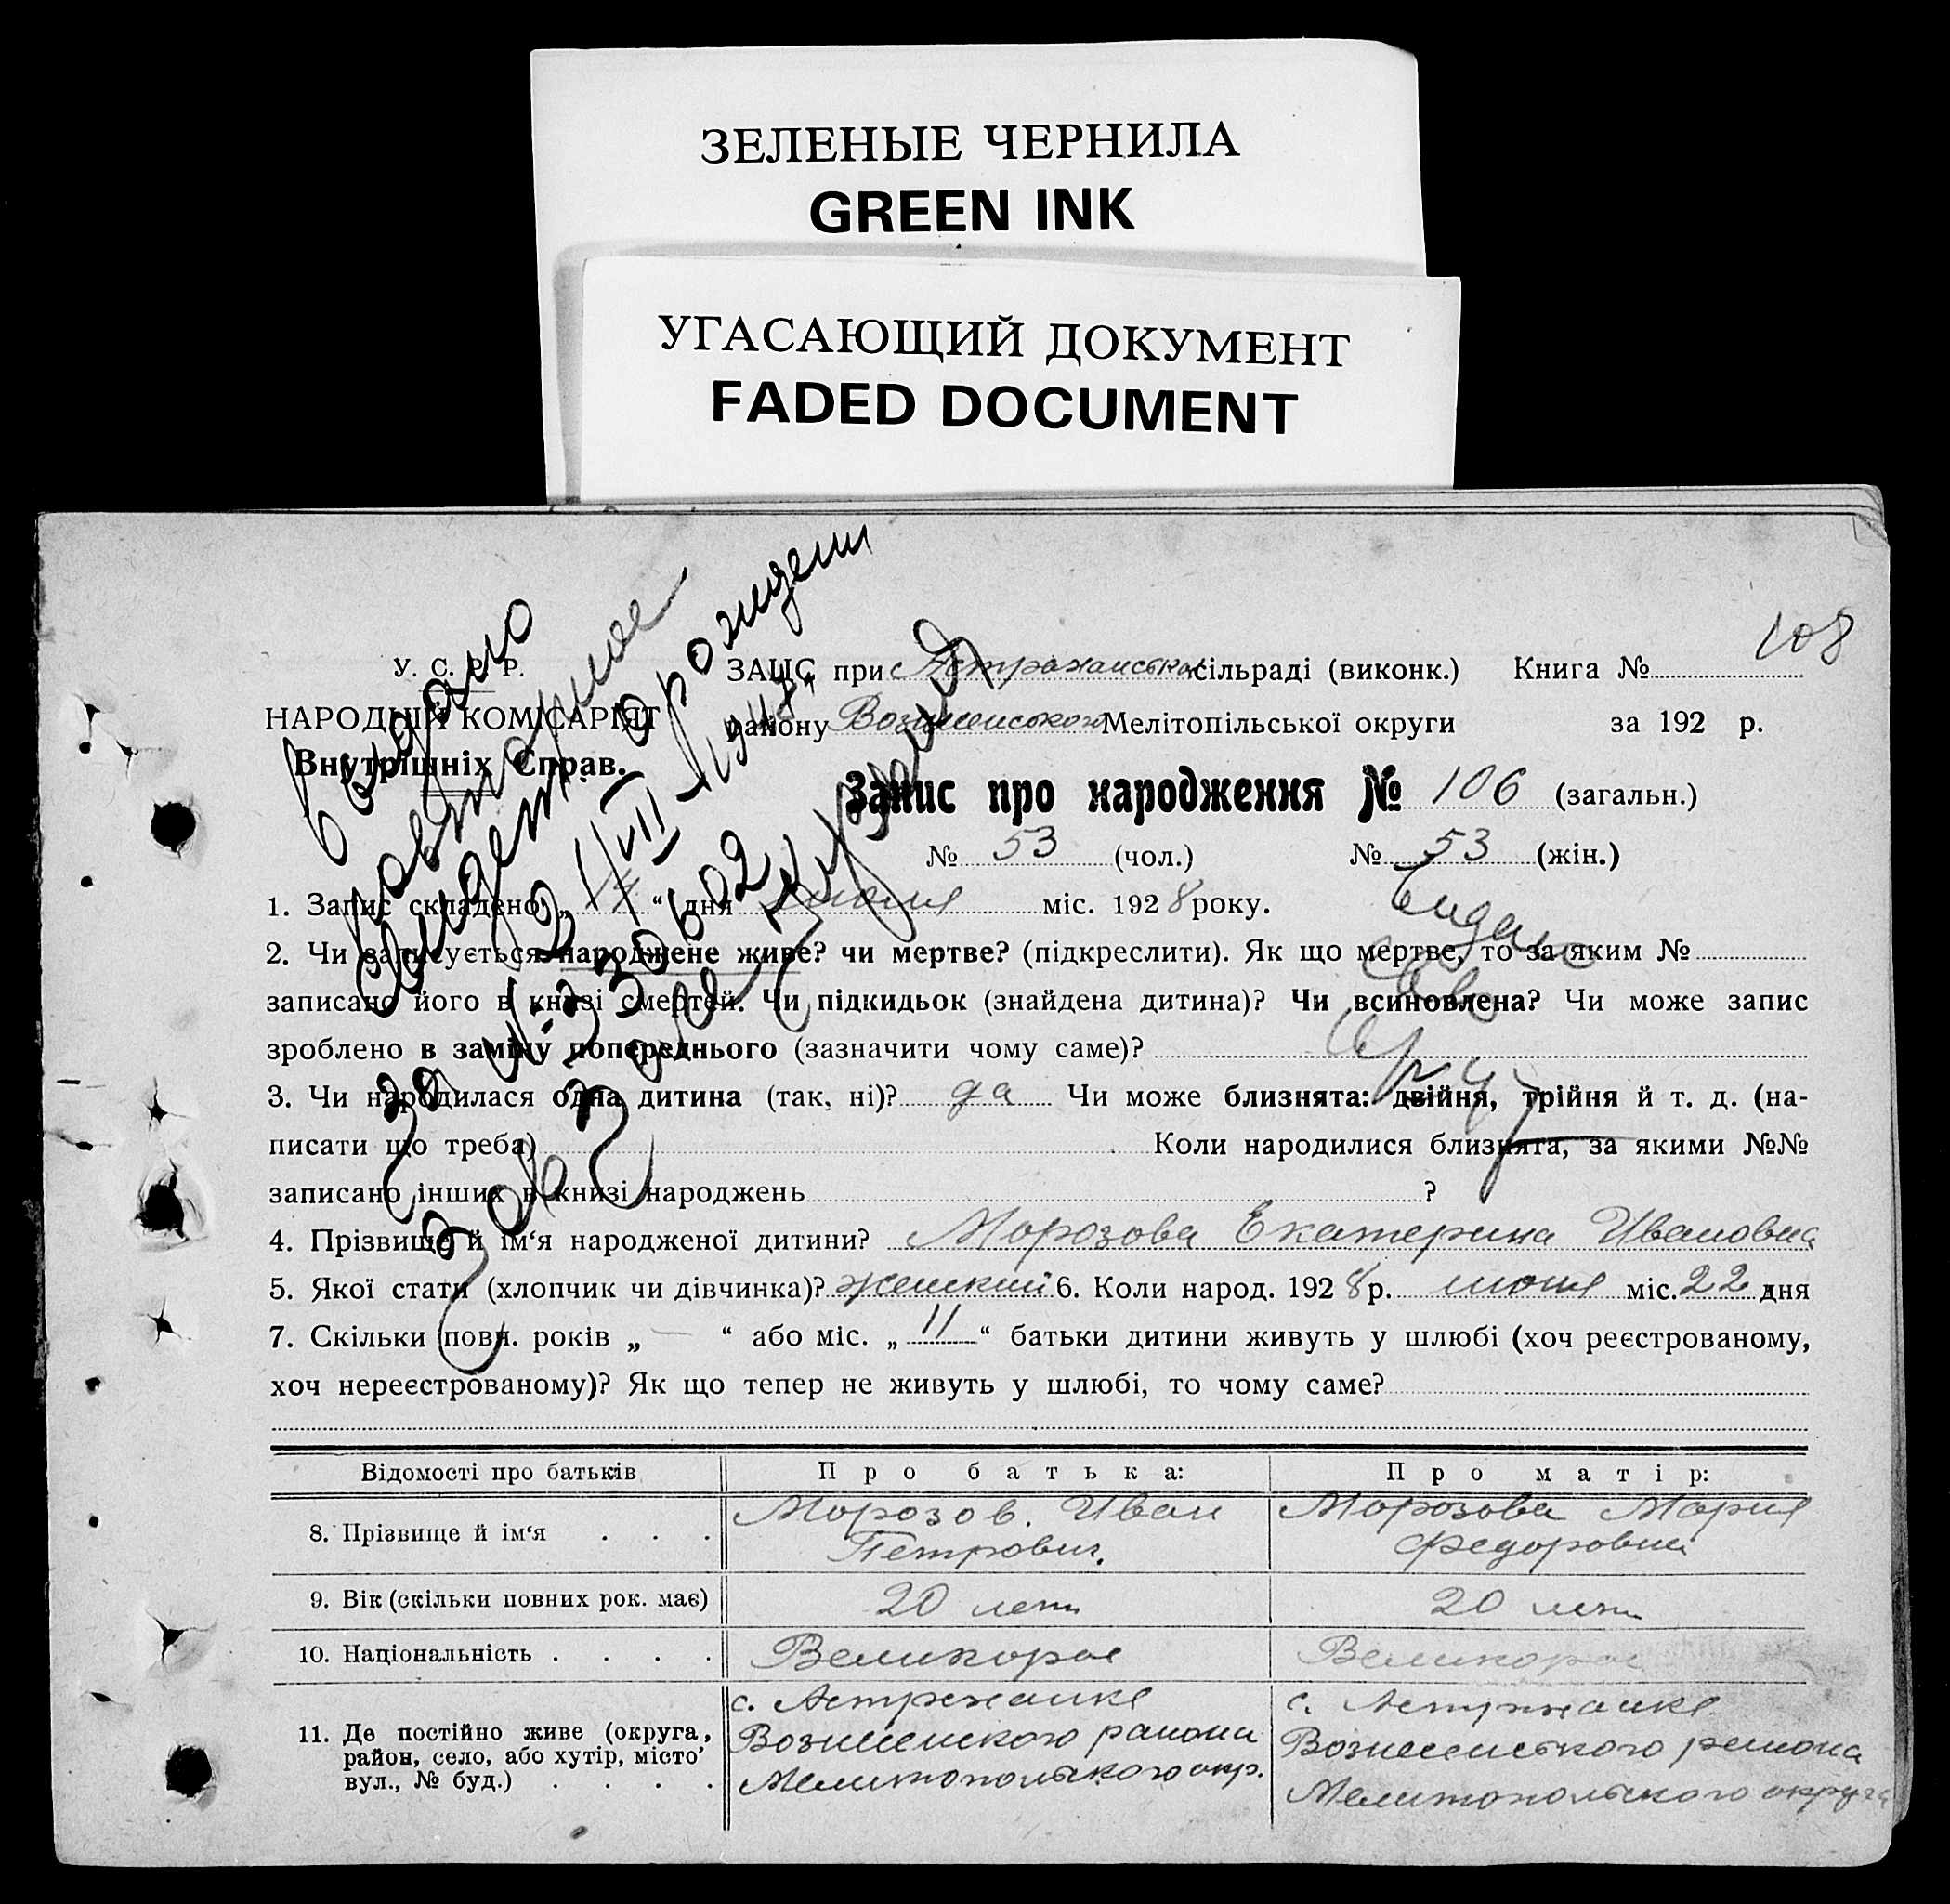 ЗЕЛЕНЫЕ ЧЕРНИЛА
GREEN INK
УГАСАЮЩИЙ ДОКУМЕНТ
FADED DOCUMENT
108
У. С. Р. Р.
НАРОДНІЙ КОМІСАРІЯТ
Внутрішніх Справ.
ЗАЦС при Астраханськой сільраді (виконк.) Книга №
району Мелітопільської округи за 192 р.
Запис про народження № 106 (загальн.)
№ 53 (чол.) № 53 (жін.)
Выдано
повторное
свидет. о рождении
1. Запис складено „ “ дня міс. 1928 року.
2. Чи записується народжене живе? чи мертве? (підкреслити). Як що мертве, то за яким №
записано його в книзі смертей. Чи підкидьок (знайдена дитина)? Чи всиновлена? Чи може запис
зроблено в заміну попереднього (зазначити чому саме)?
3. Чи народилася одна дитина (так, ні)? да Чи може близнята: двійня, трійня й т. д. (на-
писати що треба) Коли народилися близнята, за якими №№
записано інших в книзі народжень ?
4. Прізвище й ім‘я народженої дитини? Морозова Екатерина Ивановна
5. Якої стати (хлопчик чи дівчинка)? женский 6. Коли народ. 1928 р. міс. 22 дня
7. Скільки повн. років „ — “ або міс. „ 11 “ батьки дитини живуть у шлюбі (хоч реєстрованому,
хоч нереєстрованому)? Як що тепер не живуть у шлюбі, то чому саме?
Відомості про батьків Про батька: Про матір:
8. Прізвище й ім‘я . . . Морозов. Иван Петрович. Морозова Мария Федоровна
9. Вік (скільки повних рок. має) 20 лет 20 лет
10. Національність . . . . Великорос Великорос
11. Де постійно живе (округа, район, село, або хутір, місто, вул., № буд.) . . . .
с. Астраханка
Мелитопольского окр.
с. Астраханка
Мелитопольского округа